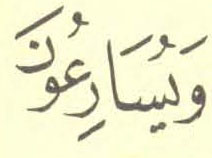 وَيُسَارِعُونَ